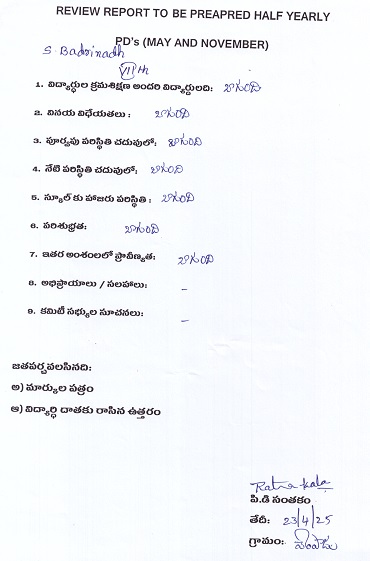 REVIEW REPORT TO BE PREAPRED HALF YEARLY
PD's (MAY AND NOVEMBER)
S Badrinadh
VII th
1. విద్యార్థుల క్రమశిక్షణ అందరి విద్యార్థులది: బాగుంది
2. వినయ విధేయతలు : బాగుంది
3. పూర్వపు పరిస్థితి చదువులో: బాగుంది
4. నేటి పరిస్థితి చదువులో: బాగుంది
5. స్కూల్ కు హాజరు పరిస్థితి : బాగుంది
6. పరిశుభ్రత: బాగుంది
7. ఇతర అంశంలలో ప్రావీణ్యత: బాగుంది
8. అభిప్రాయాలు / సలహాలు: -
9. కమిటీ సభ్యుల సూచనలు: -
జతపర్చవలసినది:
అ) మార్కుల పత్రం
ఆ) విద్యార్ధి దాతకు రాసిన ఉత్తరం
Ratna kala
పి.డి సంతకం
తేదీ: 23/4/25
గ్రామం: